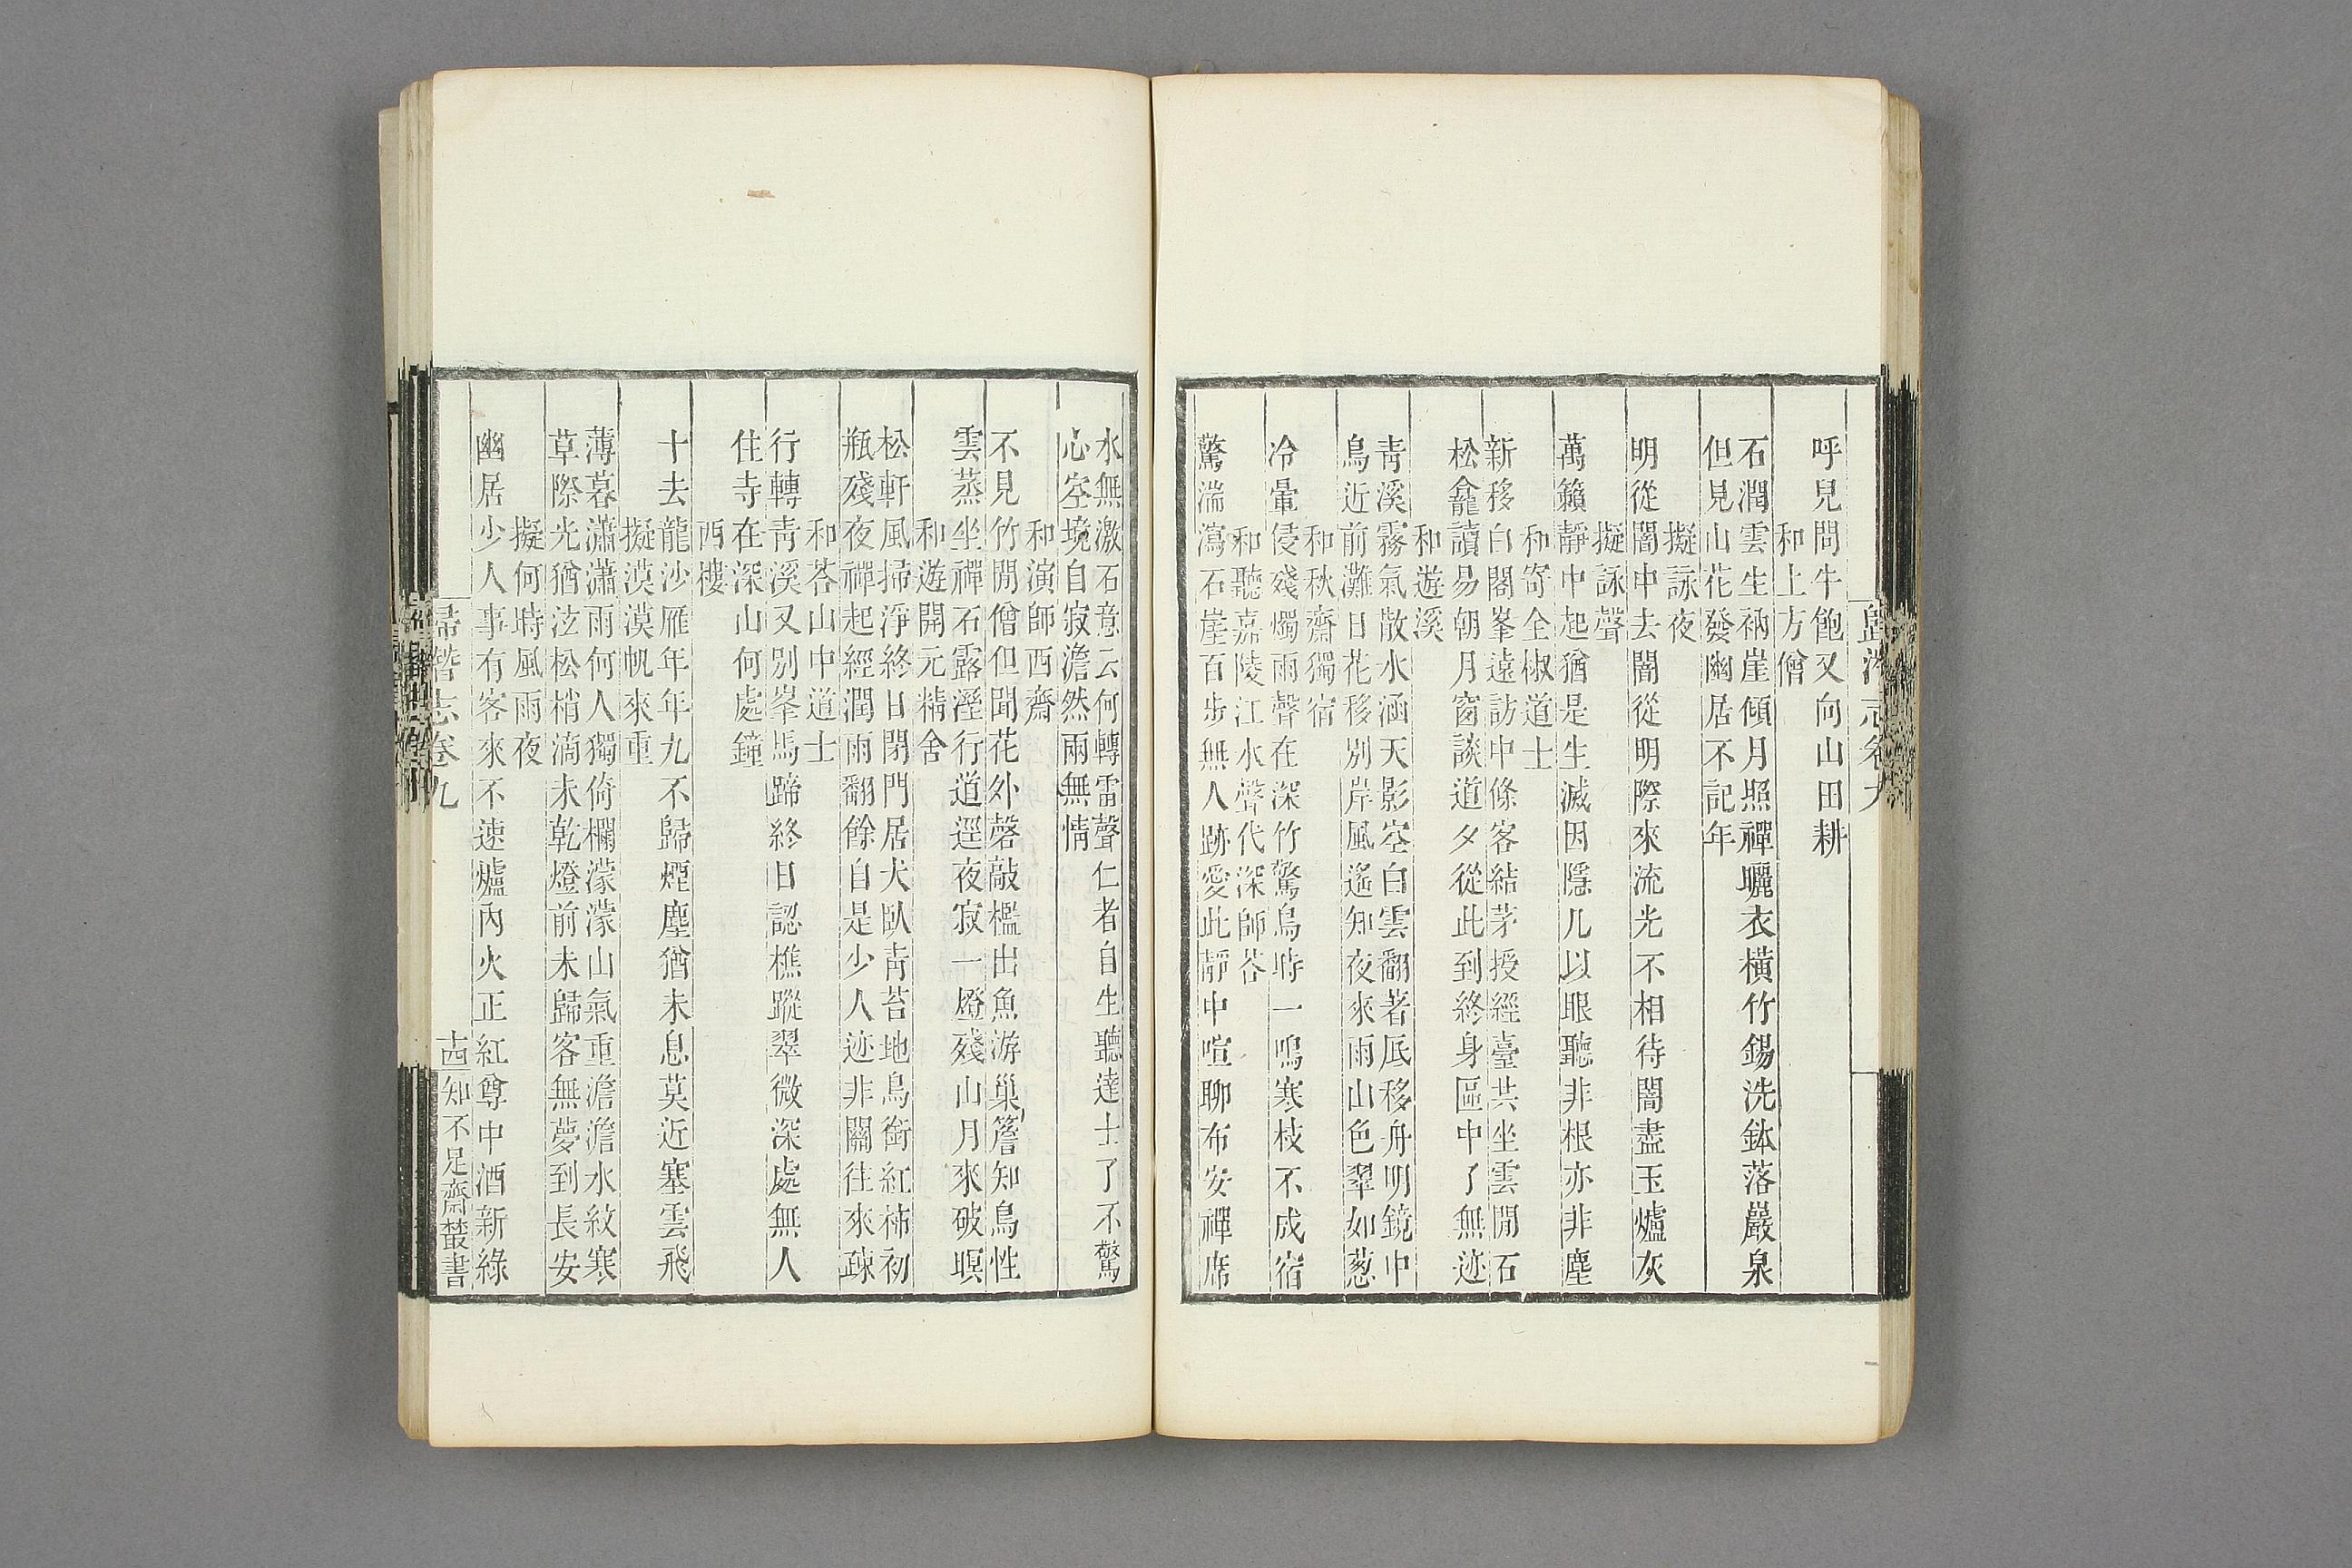 歸潛志卷九
呼兒問牛飽又向山田耕
和上方僧
石潤雲生衲崖傾月照禪曬衣橫竹錫洗鉢落巖泉
但見山花發幽居不記年
擬詠夜
明從闇中去闇從明際來流光不相待闇盡玉爐灰
擬詠聲
萬籟靜中起猶是生滅因隱几以眼聽非根亦非塵
和寄全椒道士
新移白閣峯遠訪中條客結茅授經臺共坐雲閒石
松龕讀易朝月窗談道夕從此到終身區中了無迹
和遊溪
青溪霧氣散水涵天影空白雲翻著底移舟明鏡中
鳥近前灘日花移別岸風遙知夜來雨山色翠如蔥
和秋齋獨宿
冷暈侵殘燭雨聲在深竹驚鳥時一鳴寒枝不成宿
和聽嘉陵江水聲代深師荅
驚湍瀉石崖百步無人跡愛此靜中喧聊布安禪席
水無激石意云何轉雷聲仁者自生聽達士了不驚
心空境自寂澹然兩無情
和演師西齋
不見竹閒僧但聞花外磬敲檻出魚游巢簷知鳥性
雲蒸坐禪石露溼行道逕夜寂一燈殘山月來破暝
和遊開元精舍
松軒風掃淨終日閉門居犬臥青苔地鳥銜紅柿初
瓶殘夜禪起經潤雨翻餘自是少人迹非關往來疎
和荅山中道士
行轉青溪又別峯馬蹄終日認樵蹤翠微深處無人
住寺在深山何處鐘
西樓
十去龍沙雁年年九不歸煙塵猶未息莫近塞雲飛
擬漠漠帆來重
薄暮瀟瀟雨何人獨倚欄濛濛山氣重澹澹水紋寒
草際光猶泫松梢滴未乾燈前未歸客無夢到長安
擬何時風雨夜
幽居少人事有客來不速爐內火正紅尊中酒新綠
歸潛志卷九
十四
知不足齋叢書